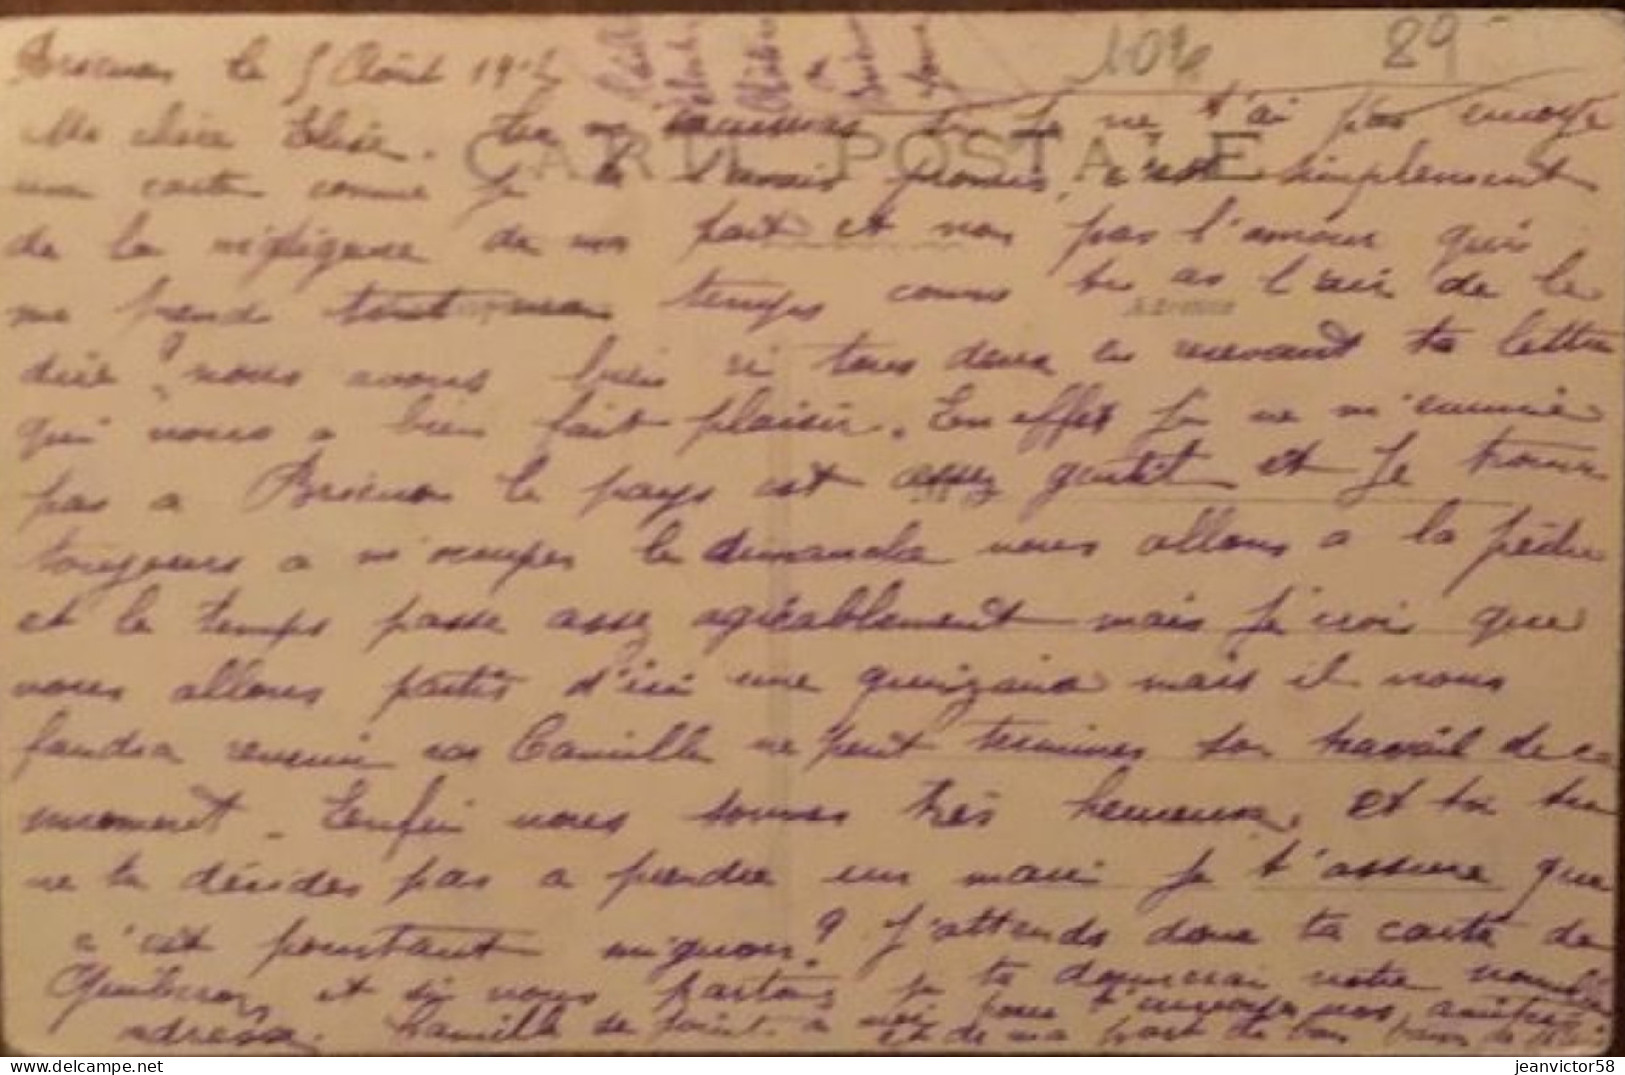 le 5 Août 191
104
89
CARTE POSTALE
Ma chère Elise. tu m' si je ne t'ai pas envoyé
une carte comme je te l'avais promis, c'est simplement
de la négligence de ma part et non pas l'amour qui
me prend tout mon temps comme tu as l'air de le
Adresse
dire? nous avons bien ri tous deux en recevant ta lettre
qui nous a bien fait plaisir. En effet je ne m'ennuie
pas a le pays est assez gentil et je trouve
toujours a m'ocuper le dimanche nous allons a la pêche
et le temps passe assez agréablement mais je crois que
nous allons partir d'ici une quinzaine mais il nous
faudra revenir car Camille ne peut terminer son travail de ce
moment. Enfin nous sommes très heureux. et toi tu
ne te décides pas a prendre un mari je t'assure que
c'est pourtant mignon? J'attends donc ta carte de
Quiberon et si nous partons je te donnerai notre nouvelle
adresse. Camille se joint a moi pour t'envoyer nos amitiés
et de ma part de bons
jeanvictor58